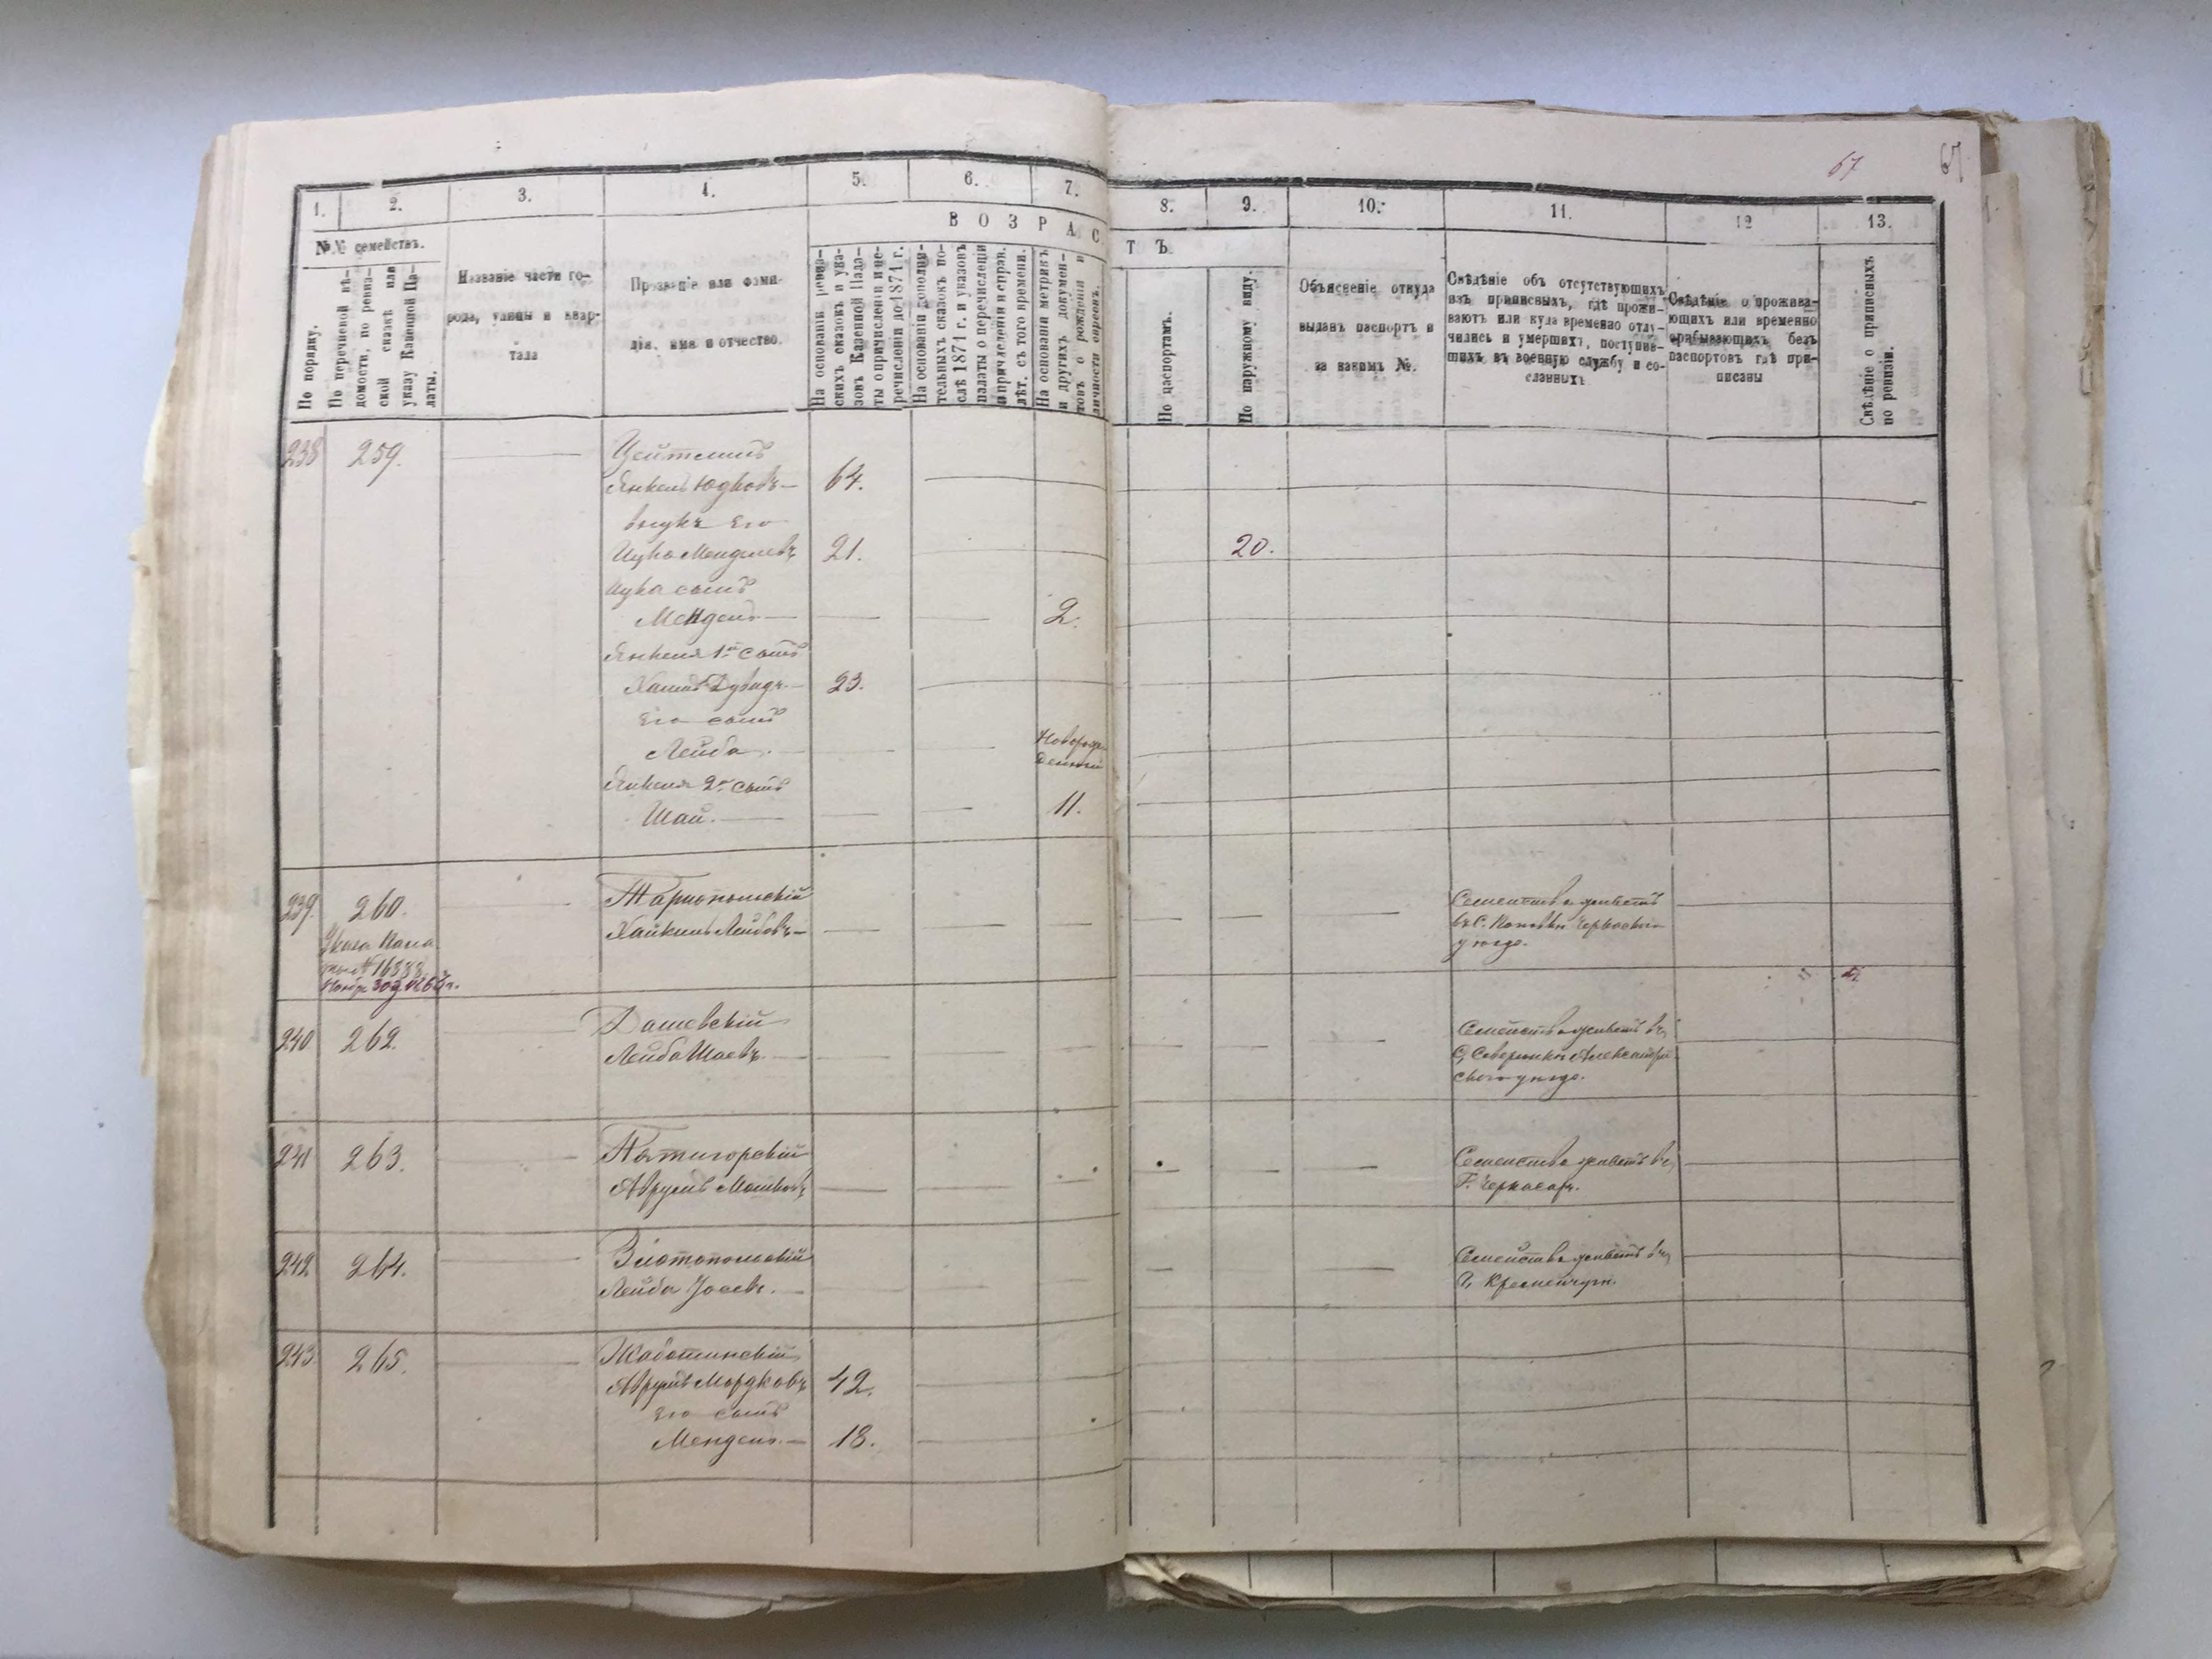 67
67
1.
2.
3.
4.
5.
6.
7.
8.
9.
10.
11.
12
13.
№№ семействъ.
По порядку.
По перечневой вѣ-
домости, по ревиз-
ской сказкѣ или
указу Казенной Па-
латы.
Названіе части го-
рода, улицы и квар-
тала
Прозваніе или фами-
лія, имя и отчество.
ВОЗРАСТЪ
На основаніи ревиз-
скихъ сказокъ и ука-
зовъ Казенной Пала-
ты о причисленіи и пе-
речисленіи до 1871 г.
На основаніи дополни-
тельныхъ сказокъ по-
слѣ 1871 г. и указовъ
палаты о перечисленіи
и причисленіи и справ.
лѣт. съ того времени.
На основаніи метрикъ
и другихъ докумен-
товъ о рожденіи и
личности евреевъ.
По паспортамъ.
По наружному виду.
Объясненіе откуда
выданъ паспортъ и
за какимъ №.
Свѣдѣніе объ отсутствующихъ
изъ приписныхъ, гдѣ прожи-
ваютъ или куда временно отлу-
чились и умершихъ, поступив-
шихъ въ военную службу и со-
сланныхъ.
Свѣдѣніе о прожива-
ющихъ или временно
прибывающихъ безъ
паспортовъ гдѣ при-
писаны
Свѣдѣніе о приписныхъ
по ревизіи.
238 259. Цейтлинъ
Янкель Юдковъ 64.
внукъ его
Ицко Менделевъ 21. 20.
Ицка сынъ
Мендель 2.
Янкеля 1й сынъ
Хаимъ Дувидъ 23.
Его сынъ
Лейба Новорож-
денный
Янкеля 2й сынъ
Шай. 11.
239. 260. Тарнопольскій Семейство живетъ
Хайкель Лейбовъ въ С. Поповки Черкасскаго
уѣзде.
Указа Пала
ты № 16888
Ноября 30д
240 262. Дашевскій Семейство живетъ въ
Лейба Шаевъ. С. Северинки Александрій
скаго уѣзде.
241 263. Пятигорскій Семейство живетъ въ
Аврумъ Мошковъ Г. Черкасахъ.
242 264. Златопольскій Семейство живетъ въ
Лейба Іосевъ. Г. Кременчуги.
243 265. Жаботинскій
Аврумъ Мордковъ 42.
Его сынъ
Мендель. 18.